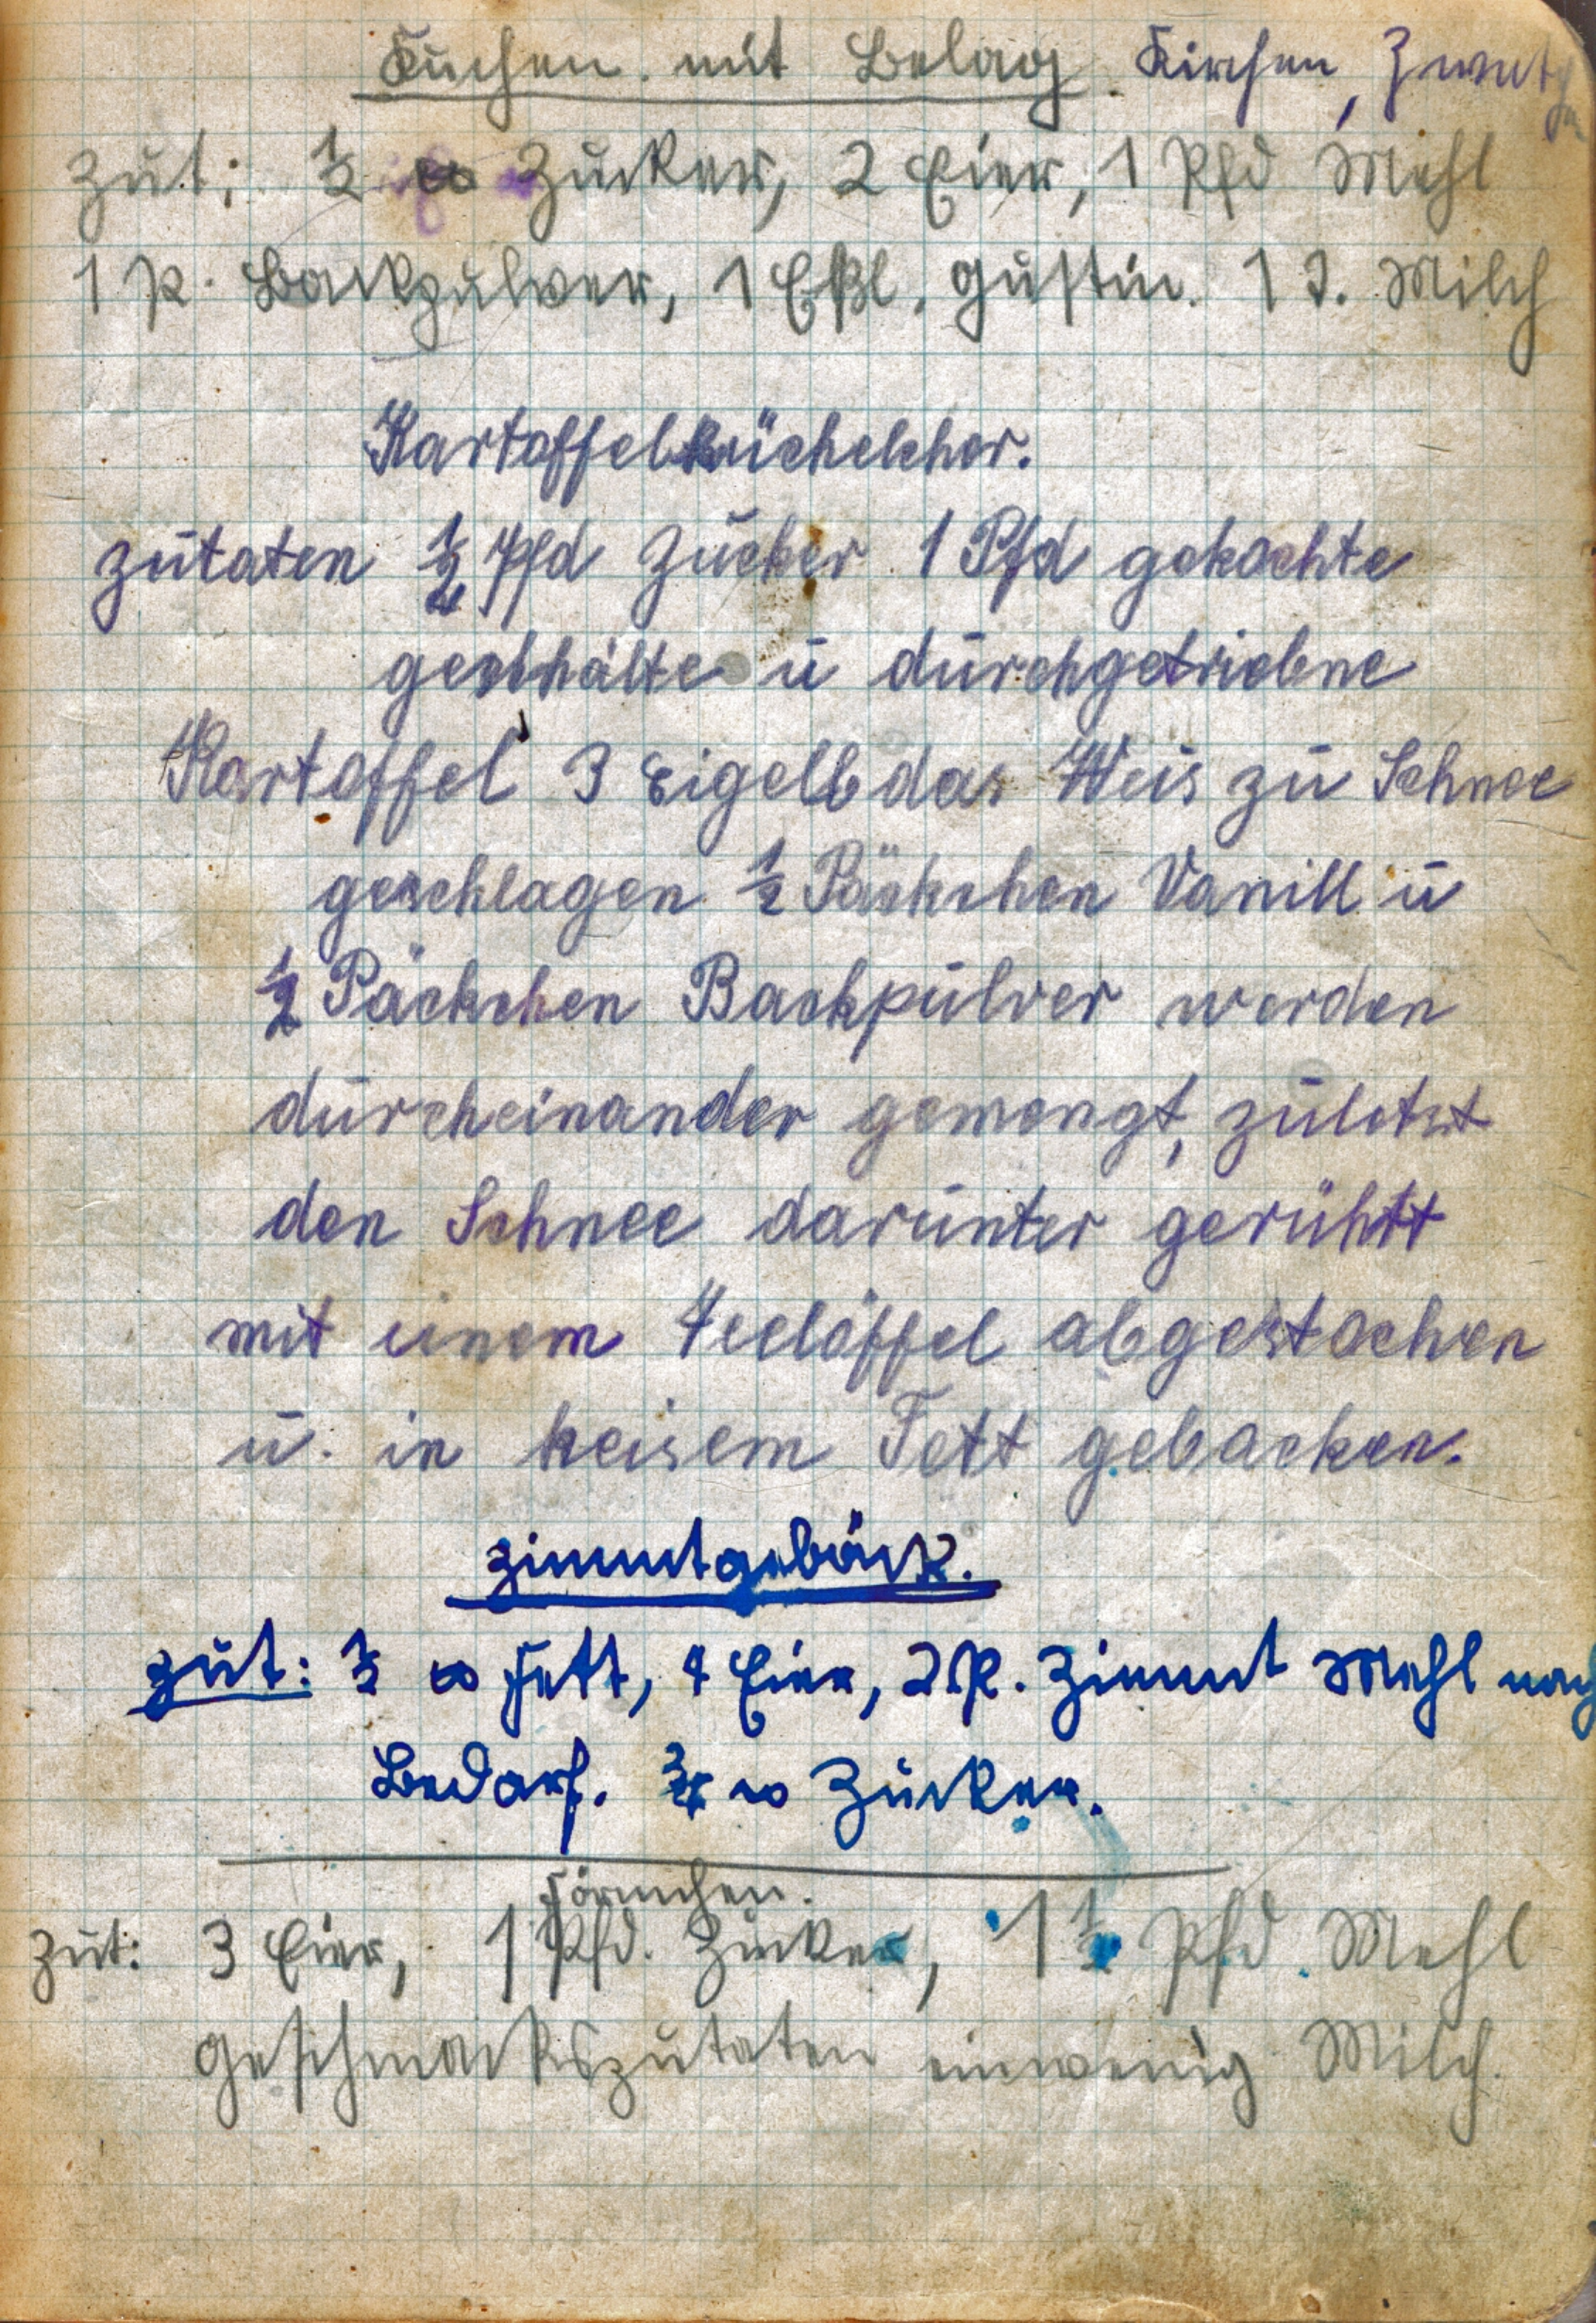 Kuchen mit Belag. Kirschen, Zwetschen
Zut: ½ ℔ Zucker, 2 Eier, 1 Pfd Mehl
1 P. Backpulver, 1 Eßl. Gustin. 1 T. Milch
Kartoffelküchelcher.
Zutaten Pfd Zucker 1 Pfd gekochte
geschhälte u durchgetriebne
Kartoffel 3 Eigelb das Weis zu Schnee
geschlagen ½ Päckchen Vanill u
½ Päckchen Backpulver werden
durcheinander gemengt, zuletzt
den Schnee darunter gerührt
mit einem Teelöffel abgestochen
u. in heisem Fett gebacken.
Zimmtgebäck.
Zut: ½ ℔ Fett, 4 Eier, 2 P. Zimmt Mehl nach
Bedarf. ¾ ℔ Zucker.
Förmchen.
Zut: 3 Eier, 1 Pfd. Zucker, 1 ½ Pfd. Mehl
Geschmackszutaten einwenig Milch.